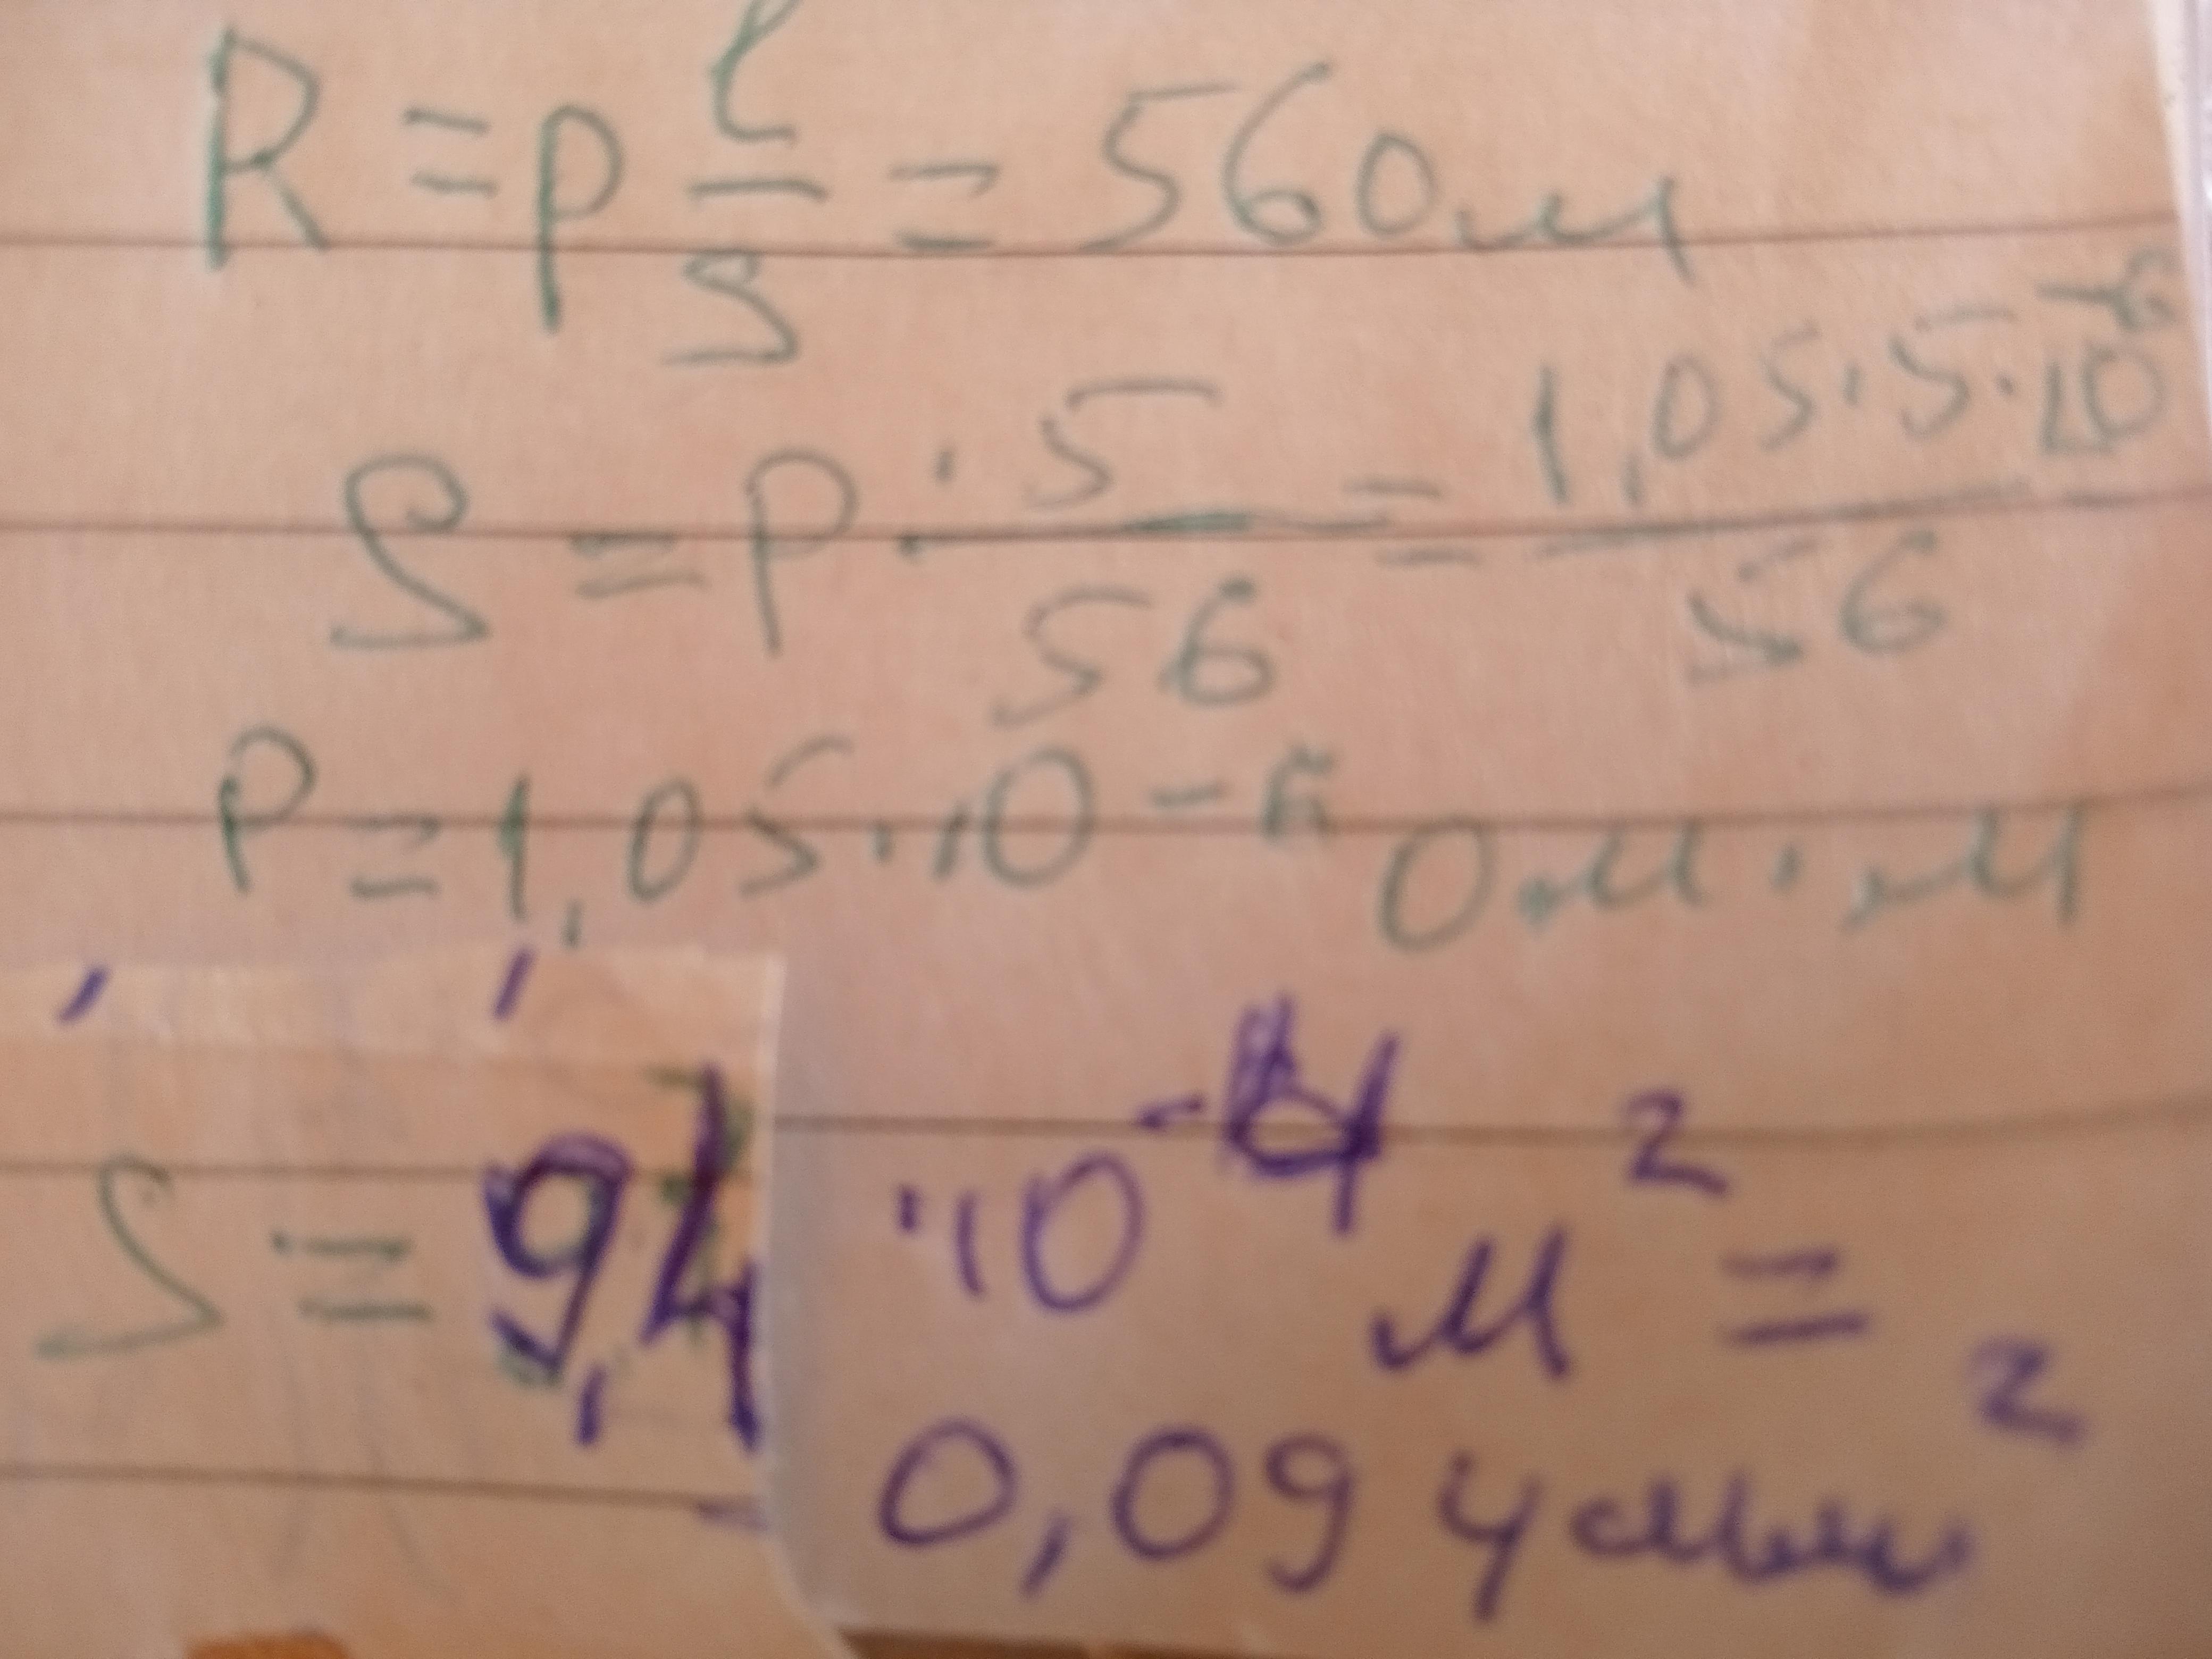 R = ρ l/S = 56 Ом
S = ρ · 5/56 = 1,05·5·10⁻⁶/56
ρ = 1,05·10⁻⁶ Ом·м
S = 9,4 ·10⁻⁴ м² =
0,094